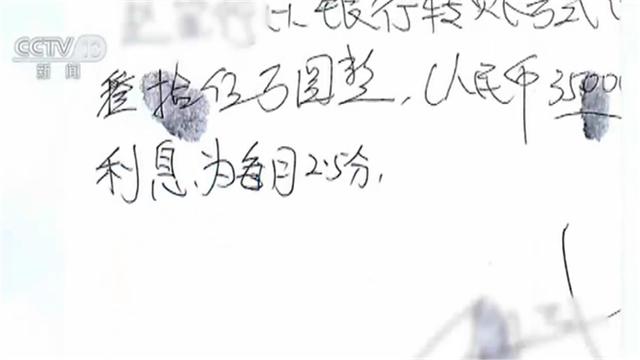 CCTV 13
新闻
以银行转账方式
叁拾伍万圆整,人民币35000
利息为每月2.5分,